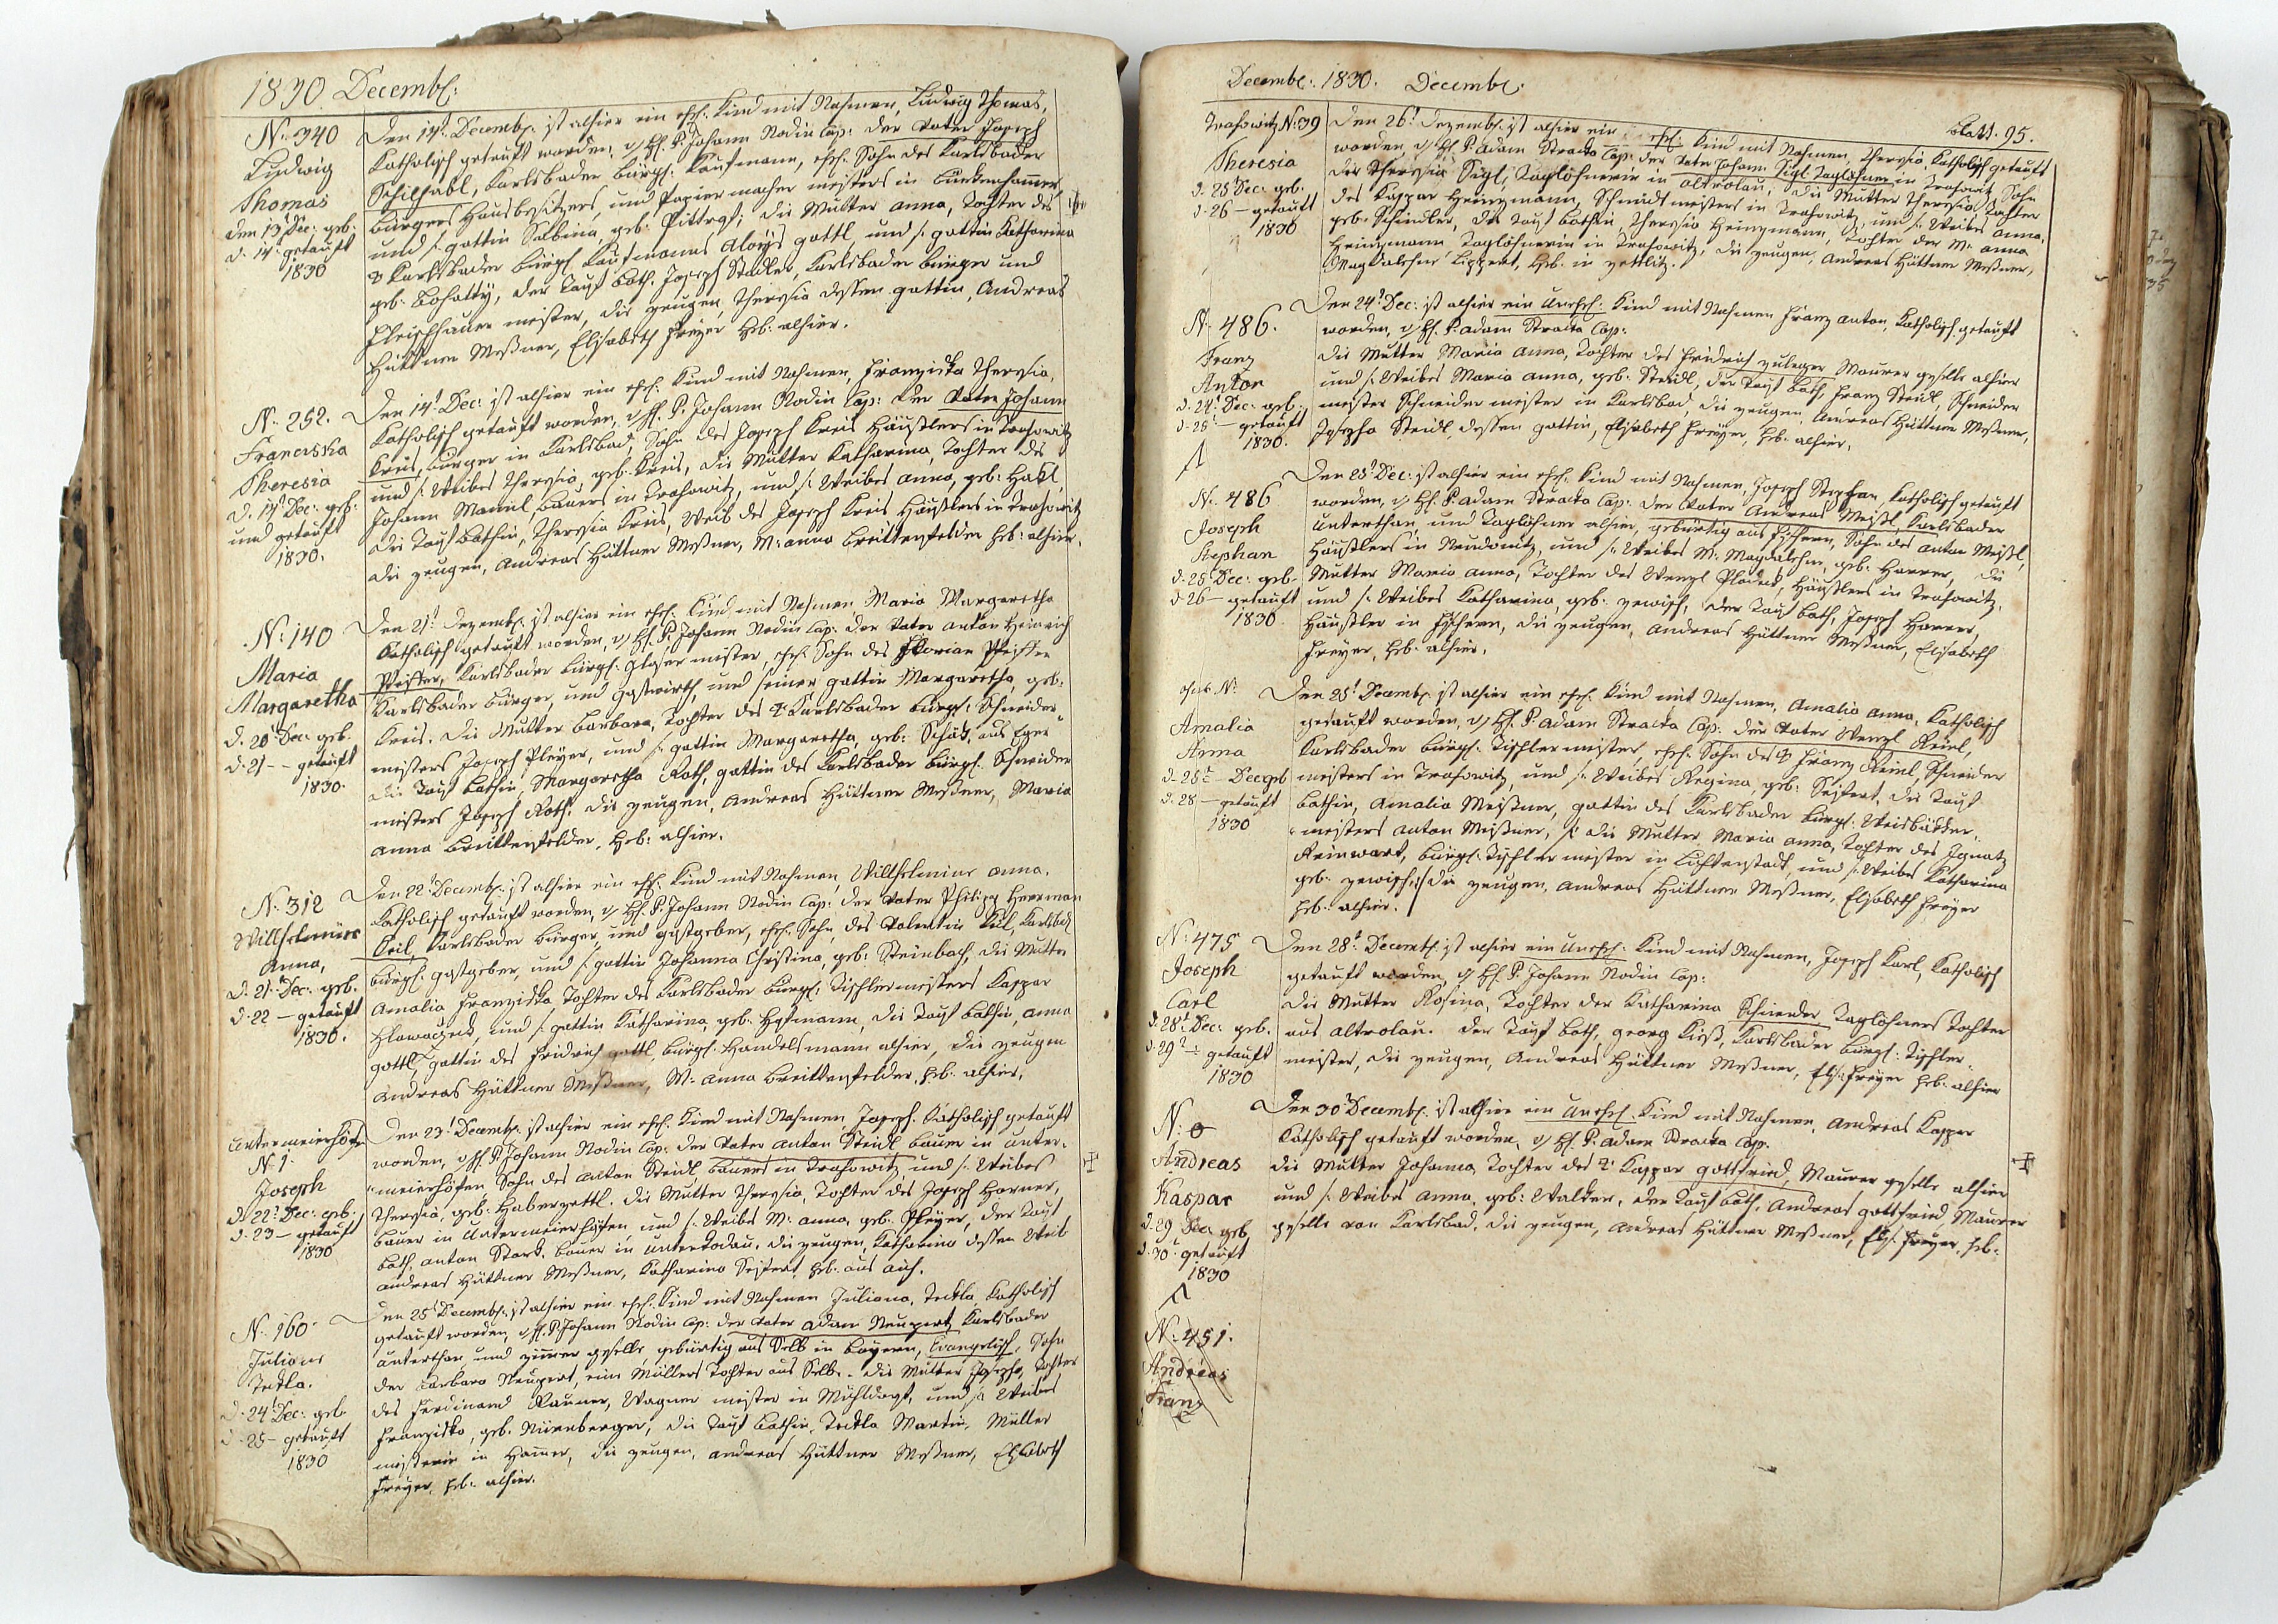 1830 Decemb:
N: 340
Ludwig
Thomas
den 13t Dec: geb:
d. 14t getauft
1830
Den 14t Decemb: ist alhier ein ehl: Kind mit Nahmen, Ludwig Thomas,
Katholisch getauft worden, v H: P. Johann Nodin Cap: der Vater Joseph
Karlsbader bürgl: Kaufmann, ehl: Sohn des Karlsbader
bürgers Hausbesitzers, und Papiermacher meisters in
und s: gattin Salbina, geb: die Mutter Anna, Tochter des
Karlsbader bürgl Kaufmanns Aloys gottl, und s: gattin Katharina
geb: der Tauf Path: Joseph Stadler, Karlsbader bürger und
Fleischhauer meister, die zeugen, Theresia dessen gattin, Andreas
Hüttner Meßner, Elisabeth Freyer Heb: alhier.
N: 252.
Franciska
Theresia
d. 14t Dec: geb:
und getauft
1830.
Den 14t Dec: ist alhier ein ehl: Kind mit Nahmen, Franziska Theresia,
Katholisch getauft worden, v H: P. Johann Nodin Cap: der Vater Johann
Kreis, bürger in Karlsbad, Sohn des Joseph Kreis Häußlers in Trahowitz
und s: Weibes Theresia, geb: Kreis, die Mutter Katharina, Tochter des
Johann Bauers in Trahowitz, und s: Weibes Anna, geb:
die Tauf Pathin, Theresia Kreis, Weib des Joseph Kreis Häußlers in Trahowitz
die zeugen, Andreas Hüttner Meßner, M: Anna Breittenfelder Heb: alhier.
N: 140
Maria
Margaretha
d. 20t Dec: geb:
d. 21 - - getauft
1830.
Den 21t Dezemb: ist alhier ein ehl: Kind mit Nahmen Maria Margaretha
Katholisch getauft worden, v H: P. Johann Nodin Cap: der Vater Anton Heinrich
Pfeiffer, Karlsbader bürgl: Glaser meister, ehl: Sohn des Florian Pfeiffer
Karlsbader bürger, und gastwirth, und seiner gattin Margaretha, geb:
Kreis. die Mutter Barbara, Tochter des Karlsbader bürgl: Schneider
meisters Joseph Pleyer, und s: gattin Margaretha, geb: Schütz, aus Eger
die Tauf Pathin, Margaretha Roth, gattin des Karlsbader bürgl. Schneider
meisters Joseph Roth. die zeugen, Andreas Hüttner Meßner, Maria
Anna Breittenfelder, Heb: alhier.
N: 312
Willhelmine
Anna,
d. 21t Dec: geb.
d. 22 — getauft
1830.
Den 22t Decemb: ist alhier ein ehl: Kind mit Nahmen, Willhelmine Anna,
Katholisch getauft worden, v H: P. Johann Nodin Cap: der Vater Philipp Herrman
Keil, Karlsbader bürger, und gastgeber, ehl: Sohn, des Valentin Keil, Karlsbad
bürgl: gastgeber, und s: gattin Johanna Christina, geb: Steinbach, die Mutter
Amalia Franziska Tochter des Karlsbader bürgl: Tischlermeisters Kaspar
Hlawaczek, und s: gattin Katharina, geb: Hofmann, die Tauf Pathin, Anna
gottl, gattin des Fridrich gottl, bürgl: Handelsmann alhier, die zeugen
Andreas Hüttner Meßner, M: Anna Breittenfelder, Heb: alhier,
Untermeierhöfen
N: 1.
Joseph
d. 22t Dec: geb:
d. 23 — getauft
1830
Den 23t Decemb: ist alhier ein ehl: Kind mit Nahmen, Joseph, Katholisch getauft
worden, v H: P. Johann Nodin Cap: der Vater Anton Steidl bauer in Unter-
meierhöfen Sohn des Anton Steidl bauers in Trahowitz und s: Weibes
Theresia, geb: Haberzettl. die Mutter Theresia, Tochter des Joseph Harrer,
bauer in Untermeierhöfen, und s: Weibes M: Anna, geb: Pleyer, der Tauf
Path, Anton Stark, bauer in Unterlodau. die zeugen, Katharina dessen Weib
Andreas Hüttner Meßner, Katharina Seifert Heb: aus Aich.
N: 160.
Juliane
Tekla.
d. 24t Dec: geb.
d. 25 — getauft
1830
Den 25t Decemb: ist alhier ein ehl: Kind mit Nahmen Juliana, Teckla, Katholisch
getauft worden, v H: P. Johann Nodin Cap: der Vater Adam Neupert, Karlsbader
Unterthan, und zimmer geselle gebürtig aus Selb in Bayern, Evangelisch, Sohn
der Barbara Neupert, eine Müllers Tochter aus Selb. die Mutter Josepha, Tochter
des Ferdinand Wagner meister in und s: Weibes
Franziska, geb. Nürnberger, die Tauf Pathin, Teckla Martin, Müller
meisterin in Hamer, die zeugen, Andreas Hüttner Meßner, Elisabeth
Freyer, Heb: alhier.
Decemb: 1830. Decemb:
Blatt. 95.
Trahowitz N: 39
Theresia
d. 25t Dec: geb.
d. 26 — getauft
1830
Den 26t Dezemb: ist alhier ein ehl: Kind mit Nahmen, Theresia, Katholisch getauft
worden, v H: P. Adam Stracka Cap: der Vater Johann Sigl Taglöhner in Trahowitz, Sohn
der Theresia Sigl, Taglöhnerin in Altrolau, die Mutter Theresia, Tochter
des Kaspar Heinzmann, Schmidtmeisters in Trahowitz, und s: Weibes Anna,
geb: Schindler, die Tauf Pathin, Theresia Heinzmann, Tochter der M: Anna
Heinzmann Taglöhnerin in Trahowitz, die zeugen, Andreas Hüttner Meßner,
Magdalena Lippert, Heb: in Zettlitz.
N: 486.
Franz
Anton
d. 24t Dec: geb:
d. 25t — getauft
1830.
Den 24t Dec: ist alhier ein Unehl: Kind mit Nahmen Franz Anton, Katholisch getauft
worden, v H: P. Adam Stracka Cap:
die Mutter Maria Anna, Tochter des Fridrich Zuleger Maurer geselle alhier
und s: Weibes Maria Anna, geb: Steidl, der Tauf Path, Franz Steidl, Schneider
meister Schneider meister in Karlsbad, die zeugen, Andreas Hüttner Meßner,
Josepha Steidl, dessen gattin, Elisabeth Freyer, Heb: alhier,
N: 486
Joseph
Stephan
d. 25 Dec: geb-
d. 26 — getauft
1830
Den 25t Dec: ist alhier ein ehl: Kind mit Nahmen, Joseph Stephan, Katholisch getauft
worden, v H: P. Adam Stracka Cap: der Vater Andreas Meißl, Karlsbader
Unterthan, und Taglöhner alhier, gebürtig aus Fischern, Sohn des Anton Meißl,
Häußlers in Neudonitz, und s: Weibes M: Magdalena, geb: Harrer, die
Mutter Maria Anna, Tochter des Wenzl Häußlers in Trahowitz,
und s: Weibes Katharina, geb: der Tauf Path, Joseph Harrer,
Häußler in Fischern, die zeugen, Andreas Hüttner Meßner, Elisabeth
Freyer, Heb: alhier.
ohne N:
Amalia
Anna
d. 25t — Dec geb
d. 28 — getauft
1830
Den 28t Decemb: ist alhier ein ehl: Kind mit Nahmen, Amalia Anna, Katholisch
getauft worden, v H: P. Adam Stracka Cap: der Vater Wenzl
Karlsbader bürgl: Tischlermeister, ehl: Sohn des Franz Schneider
meisters in Trahowitz, und s: Weibes Regina, geb: Seifert, die Tauf
Pathin, Amalia Meißner, gattin des Karlsbader bürgl: Weisbäcker
meisters Anton Meißner, die Mutter Maria Anna, Tochter des Ignatz
Reinwart, bürgl: Tischlermeister in Lichtenstadt, und s: Weibes Katharina
geb: die zeugen, Andreas Hüttner Meßner, Elisabeth Freyer
Heb: alhier.
N: 475
Joseph
Carl
d. 28t Dec: geb.
d. 29t — getauft
1830
Den 28t Decemb: ist alhier ein Unehl: Kind mit Nahmen, Joseph Karl, Katholisch
getauft worden, v H: P. Johann Nodin Cap:
die Mutter Rosina, Tochter der Katharina Taglöhners Tochter
aus Altrolau. der Tauf Path, Georg Karlsbader bürgl: Tischler
meister, die zeugen, Andreas Hüttner Meßner, Elis: Freyer Heb: alhier
N: 0
Andreas
Kaspar
d. 29 Dec: geb
d. 30t getauft
1830
Den 30t Decemb: ist alhier ein Unehl: Kind mit Nahmen, Andreas Kaspar
Katholisch getauft worden, v H: P. Adam Stracka Cap:
die Mutter Johanna, Tochter des Kaspar Gottfried, Maurer geselle alhier
und s: Weibes Anna, geb: Walder, der Tauf Path, Andreas Gottfried, Maurer
geselle von Karlsbad, die zeugen, Andreas Hüttner Meßner, Elis: Freyer, Heb:
N: 451.
Andreas
Franz